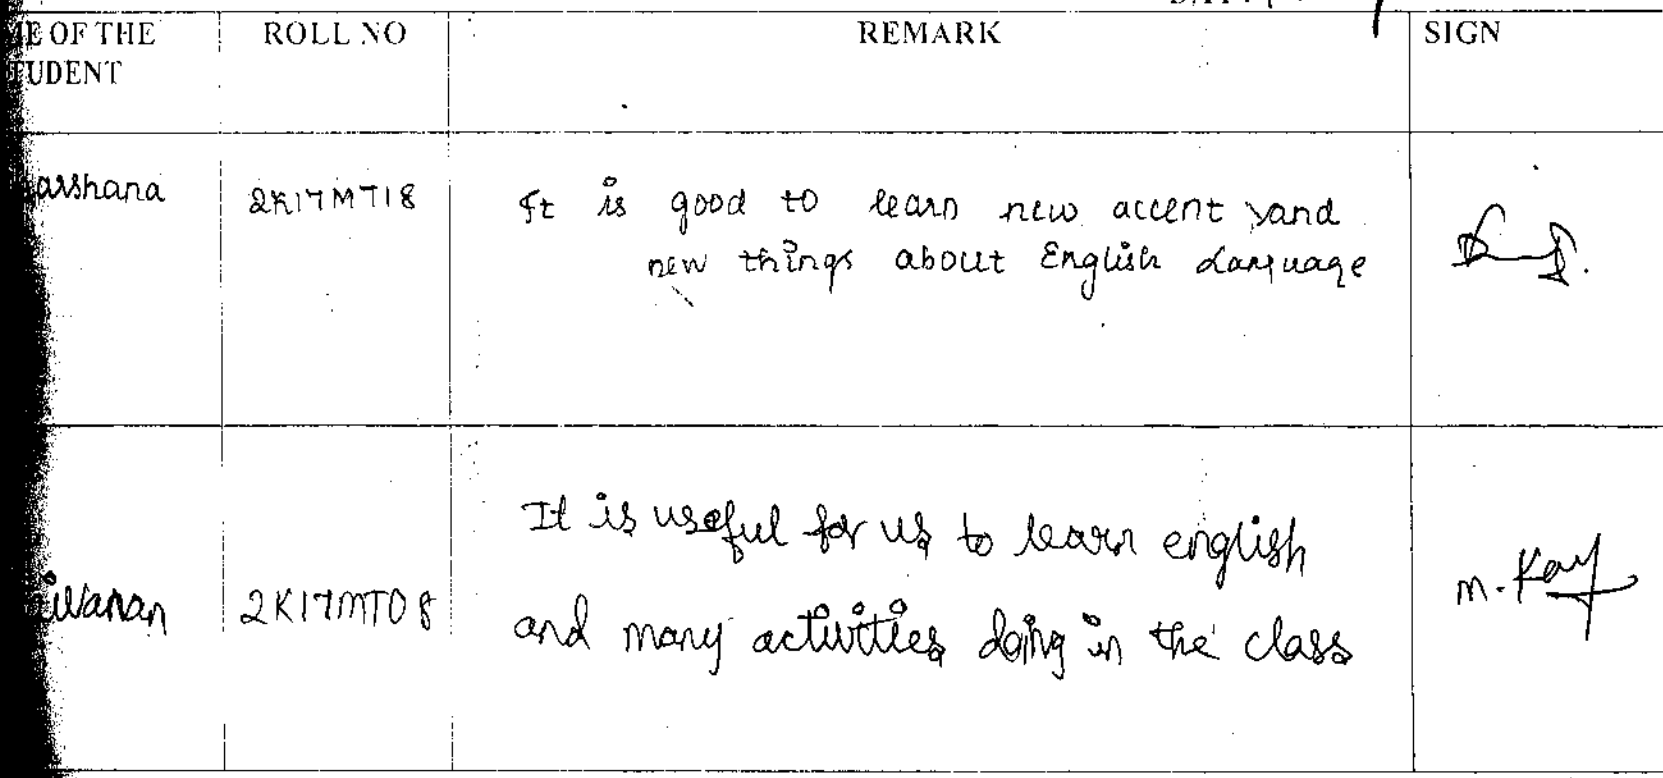 ME OF THE ROLL NO REMARK SIGN
TUDENT
arshana 2K17MT18 It is good to learn new accent and
new things about English Language
ivanan 2K17MT08 It is useful for us to learn english
and many activities doing in the class
M. Kay